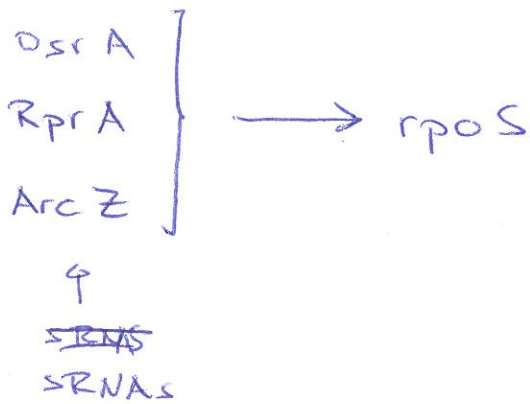 OsrA
RprA
ArcZ
rpoS
sRNAs
sRNAs